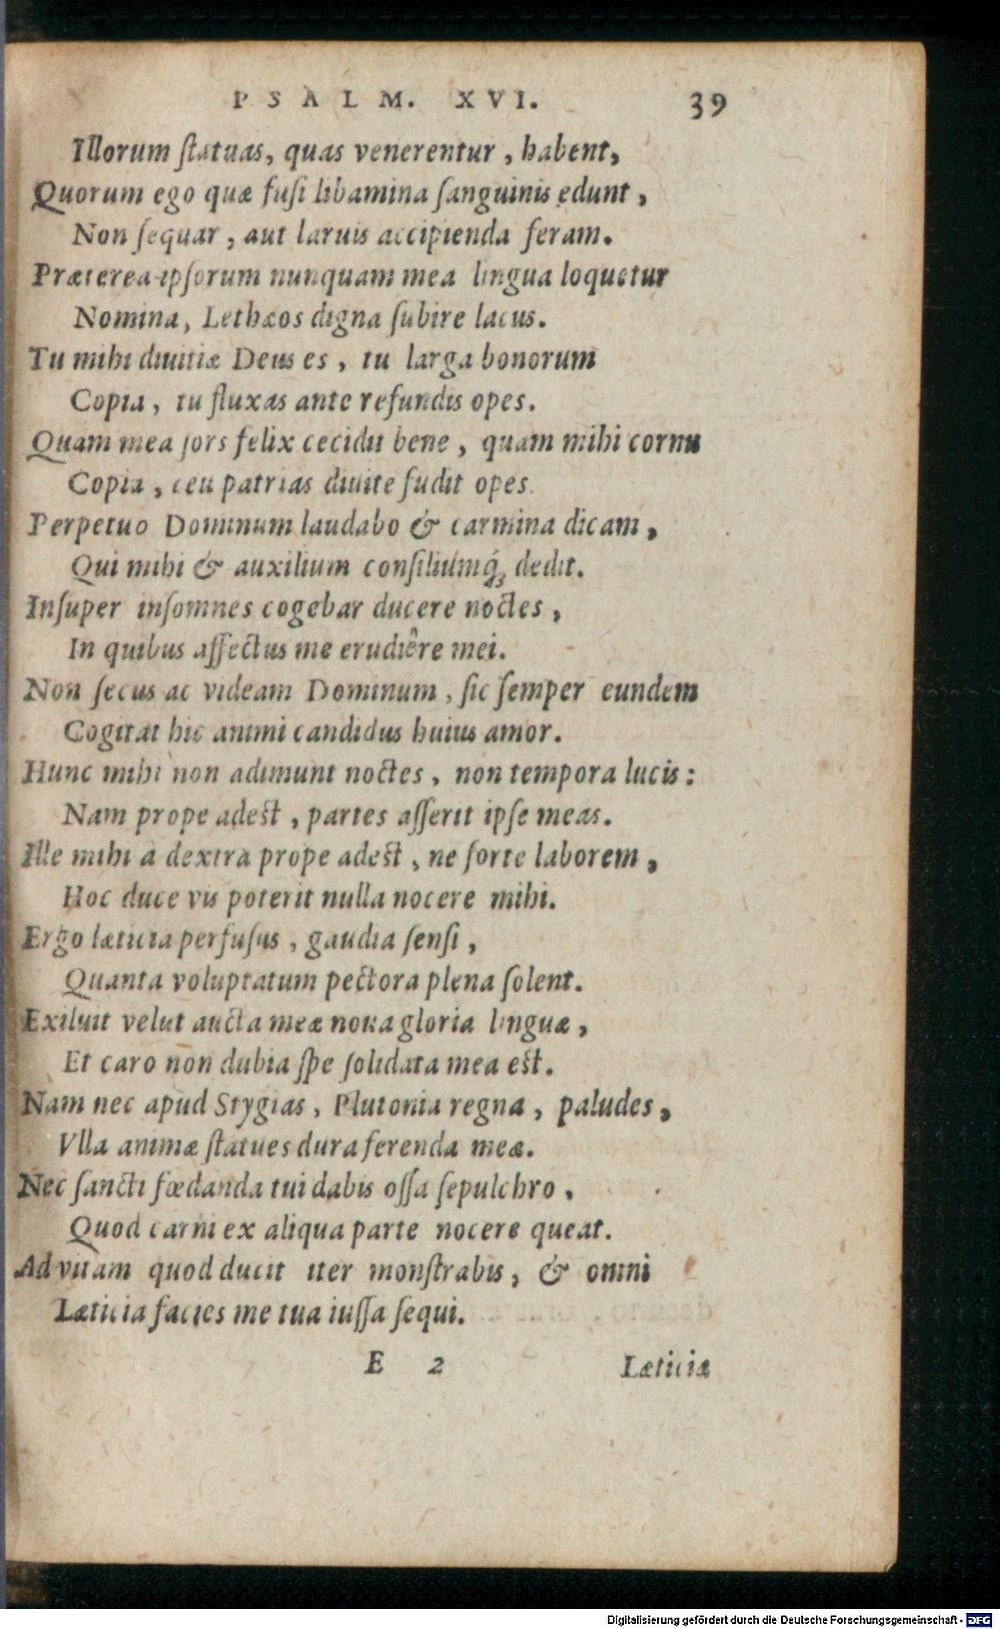 PSALM. XVI. 39
Illorum ſtatuas, quas venerentur, habent,
Quorum ego quæ fuſi libamina ſanguinis edunt,
Non ſequar, aut laruis accipienda feram.
Præterea ipſorum nunquam mea lingua loquetur
Nomina, Lethæos digna ſubire lacus.
Tu mihi diuitiæ Deus es, tu larga bonorum
Copia, tu fluxas ante refundis opes.
Quam mea ſors felix cecidit bene, quam mihi cornu
Copia, ceu patrias diuite fudit opes.
Perpetuo Dominum laudabo & carmina dicam,
Qui mihi & auxilium conſiliumq́ꝫ dedit.
Inſuper inſomnes cogebar ducere noctes,
In quibus affectus me erudiêre mei.
Non ſecus ac videam Dominum, ſic ſemper eundem
Cogitat hic animi candidus huius amor.
Hunc mihi non adimunt noctes, non tempora lucis:
Nam prope adest, partes aſſerit ipſe meas.
Ille mihi à dextra prope adest, ne forte laborem,
Hoc duce vis poterit nulla nocere mihi.
Ergo læticia perfuſus, gaudia ſenſi,
Quanta voluptatum pectora plena ſolent.
Exiluit velut aucta meæ noua gloria linguæ,
Et caro non dubia ſpe ſolidata mea est.
Nam nec apud Stygias, Plutonia regna, paludes,
Vlla animæ ſtatues dura ferenda meæ.
Nec ſancti fœdanda tui dabis oſſa ſepulchro,
Quod carni ex aliqua parte nocere queat.
Ad vitam quod ducit iter monſtrabis, & omni
Læticia facies me tua iuſſa ſequi.
E 2 Læticiæ
Digitalisierung gefördert durch die Deutsche Forschungsgemeinschaft - DFG